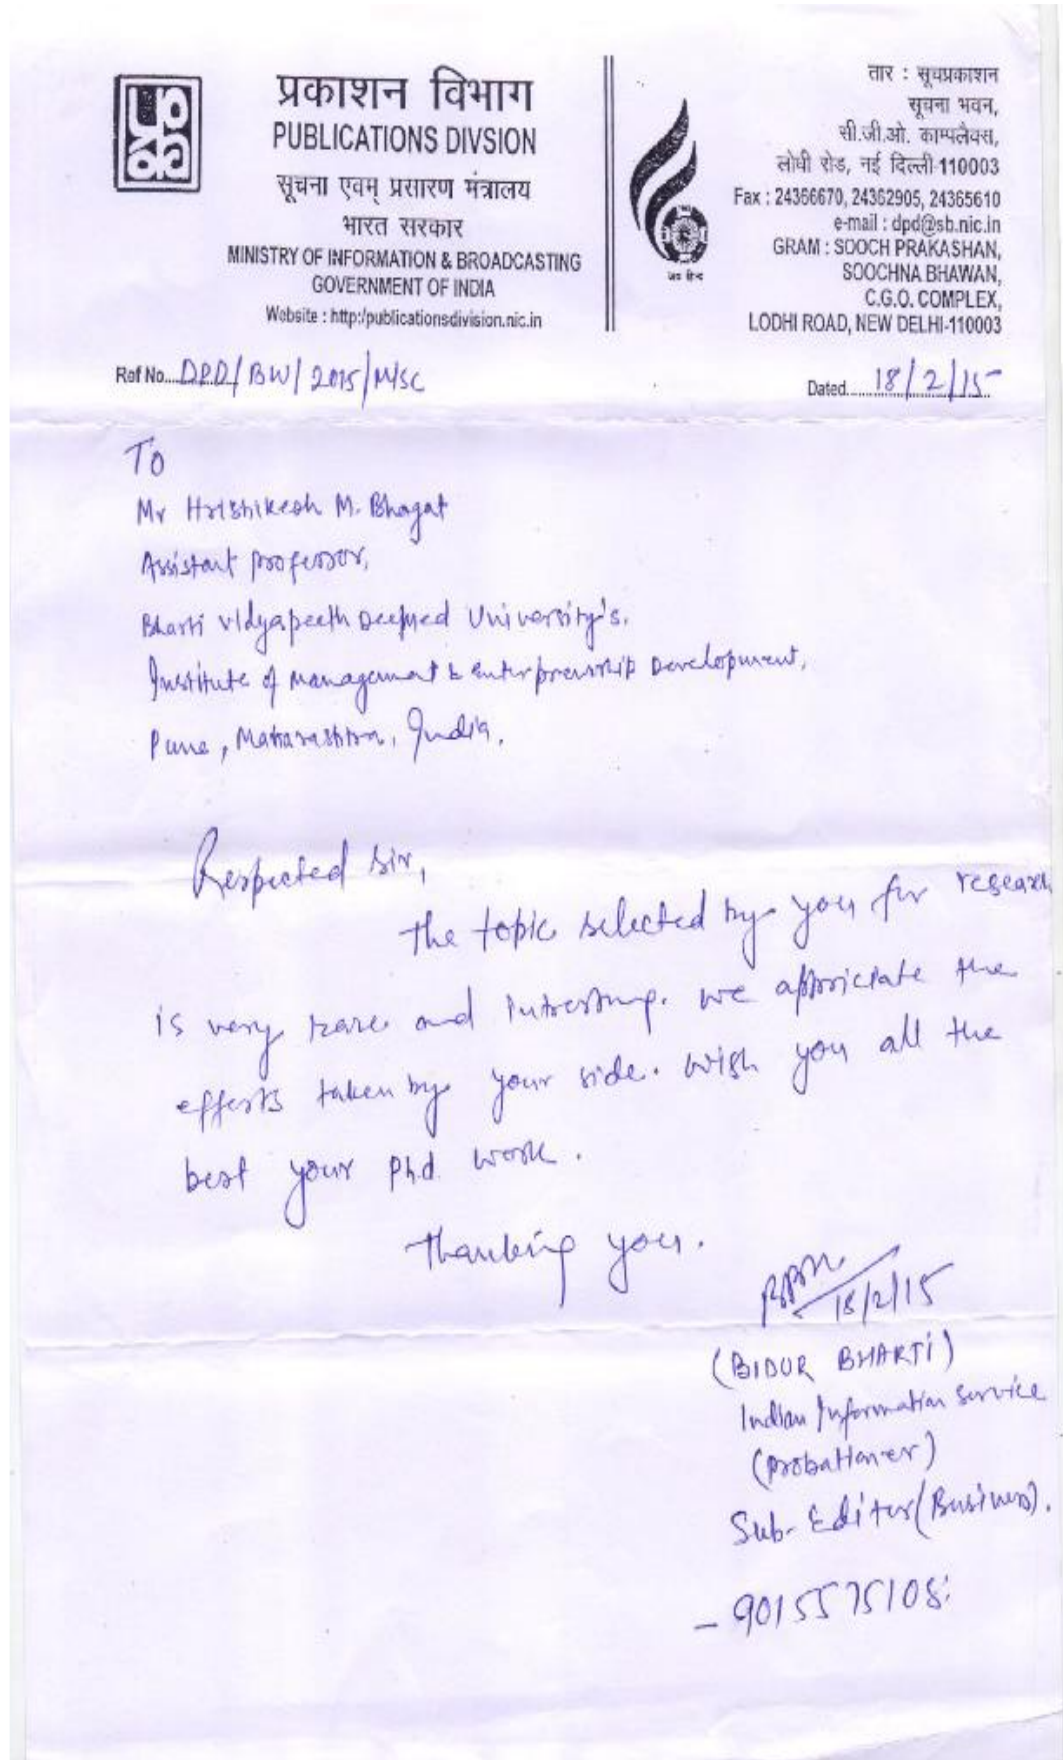 प्रकाशन विभाग
PUBLICATIONS DIVSION
सूचना एवम् प्रसारण मंत्रालय
भारत सरकार
MINISTRY OF INFORMATION & BROADCASTING
GOVERNMENT OF INDIA
Website : http:/publicationsdivision.nic.in
जय हिन्द
तार : सूचप्रकाशन
सूचना भवन,
सी.जी.ओ. काम्पलैक्स,
लोधी रोड, नई दिल्ली-110003
Fax : 24366670, 24362905, 24365610
e-mail : dpd@sb.nic.in
GRAM : SOOCH PRAKASHAN,
SOOCHNA BHAWAN,
C.G.O. COMPLEX,
LODHI ROAD, NEW DELHI-110003
Ref No....DPD/BW/2015/Misc
Dated.......18/2/15
To
Mr Hrishikesh M. Bhagat
Assistant professor,
Bharti vidyapeeth Deemed University's.
Institute of management & Enterprenurship Development,
Pune, Maharashtra, India.
Respected Sir,
The topic selected by you for research
is very rare and Intresting. we appriciate the
efforts taken by your side. wish you all the
best your Ph.d. work.
Thanking you.
18/2/15
(BIDUR BHARTI)
Indian Information Service
(Probationer)
Sub-Editor (Business).
- 9015575108